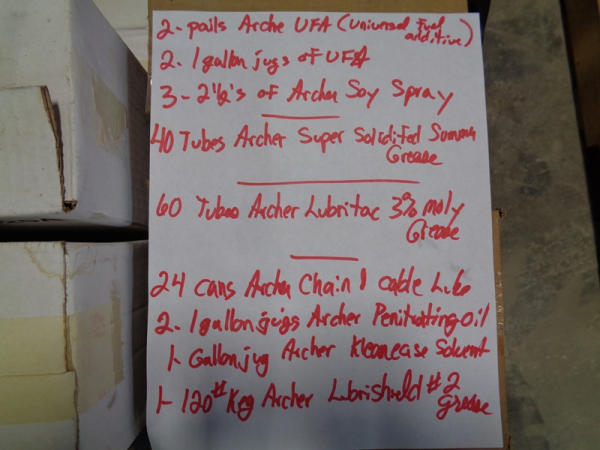 2- pails Archer UFA (Universal Fuel additive)
2- 1 gallon jugs of UFA
3- 2½'s of Archer Soy Spray
40 Tubes Archer Super Solidifed Summer
Grease
60 Tubes Archer Lubritac 3% moly
Grease
24 cans Archer Chain & cable Lube
2- 1 gallon jugs Archer Penitrating oil
1- Gallon jug Archer Kleanease Solvent
1- 120# Keg Archer Lubrishield #2
grease